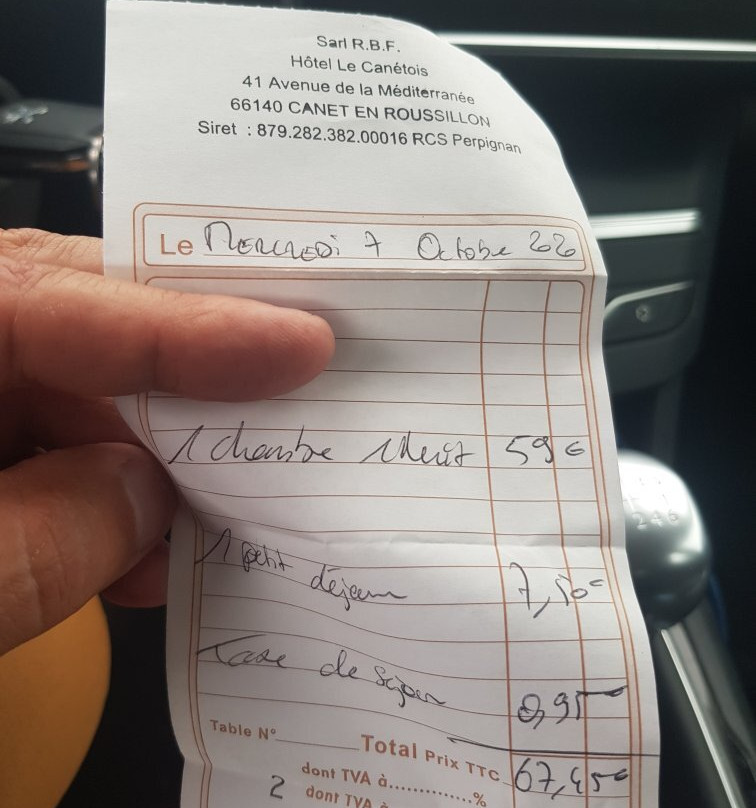 Sarl R.B.F.
Hôtel Le Canétois
41 Avenue de la Méditerranée
66140 CANET EN ROUSSILLON
Siret : 879.282.382.00016 RCS Perpignan
Le Mercredi 7 Octobre 2020
1 chambre 1 Nuit 59 €
1 petit déjeun 7,50€
Taxe de Séjour 0,95
Table N° Total Prix TTC 67,45€
dont TVA à..............%
2 dont TVA à